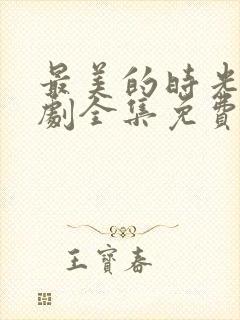 最美的時光
劇全集免費
王寶春